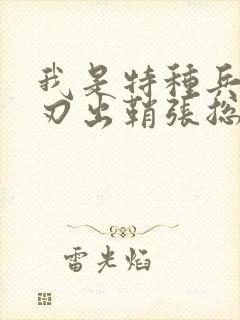 我是特種兵
刃出鞘張總
雷光焰